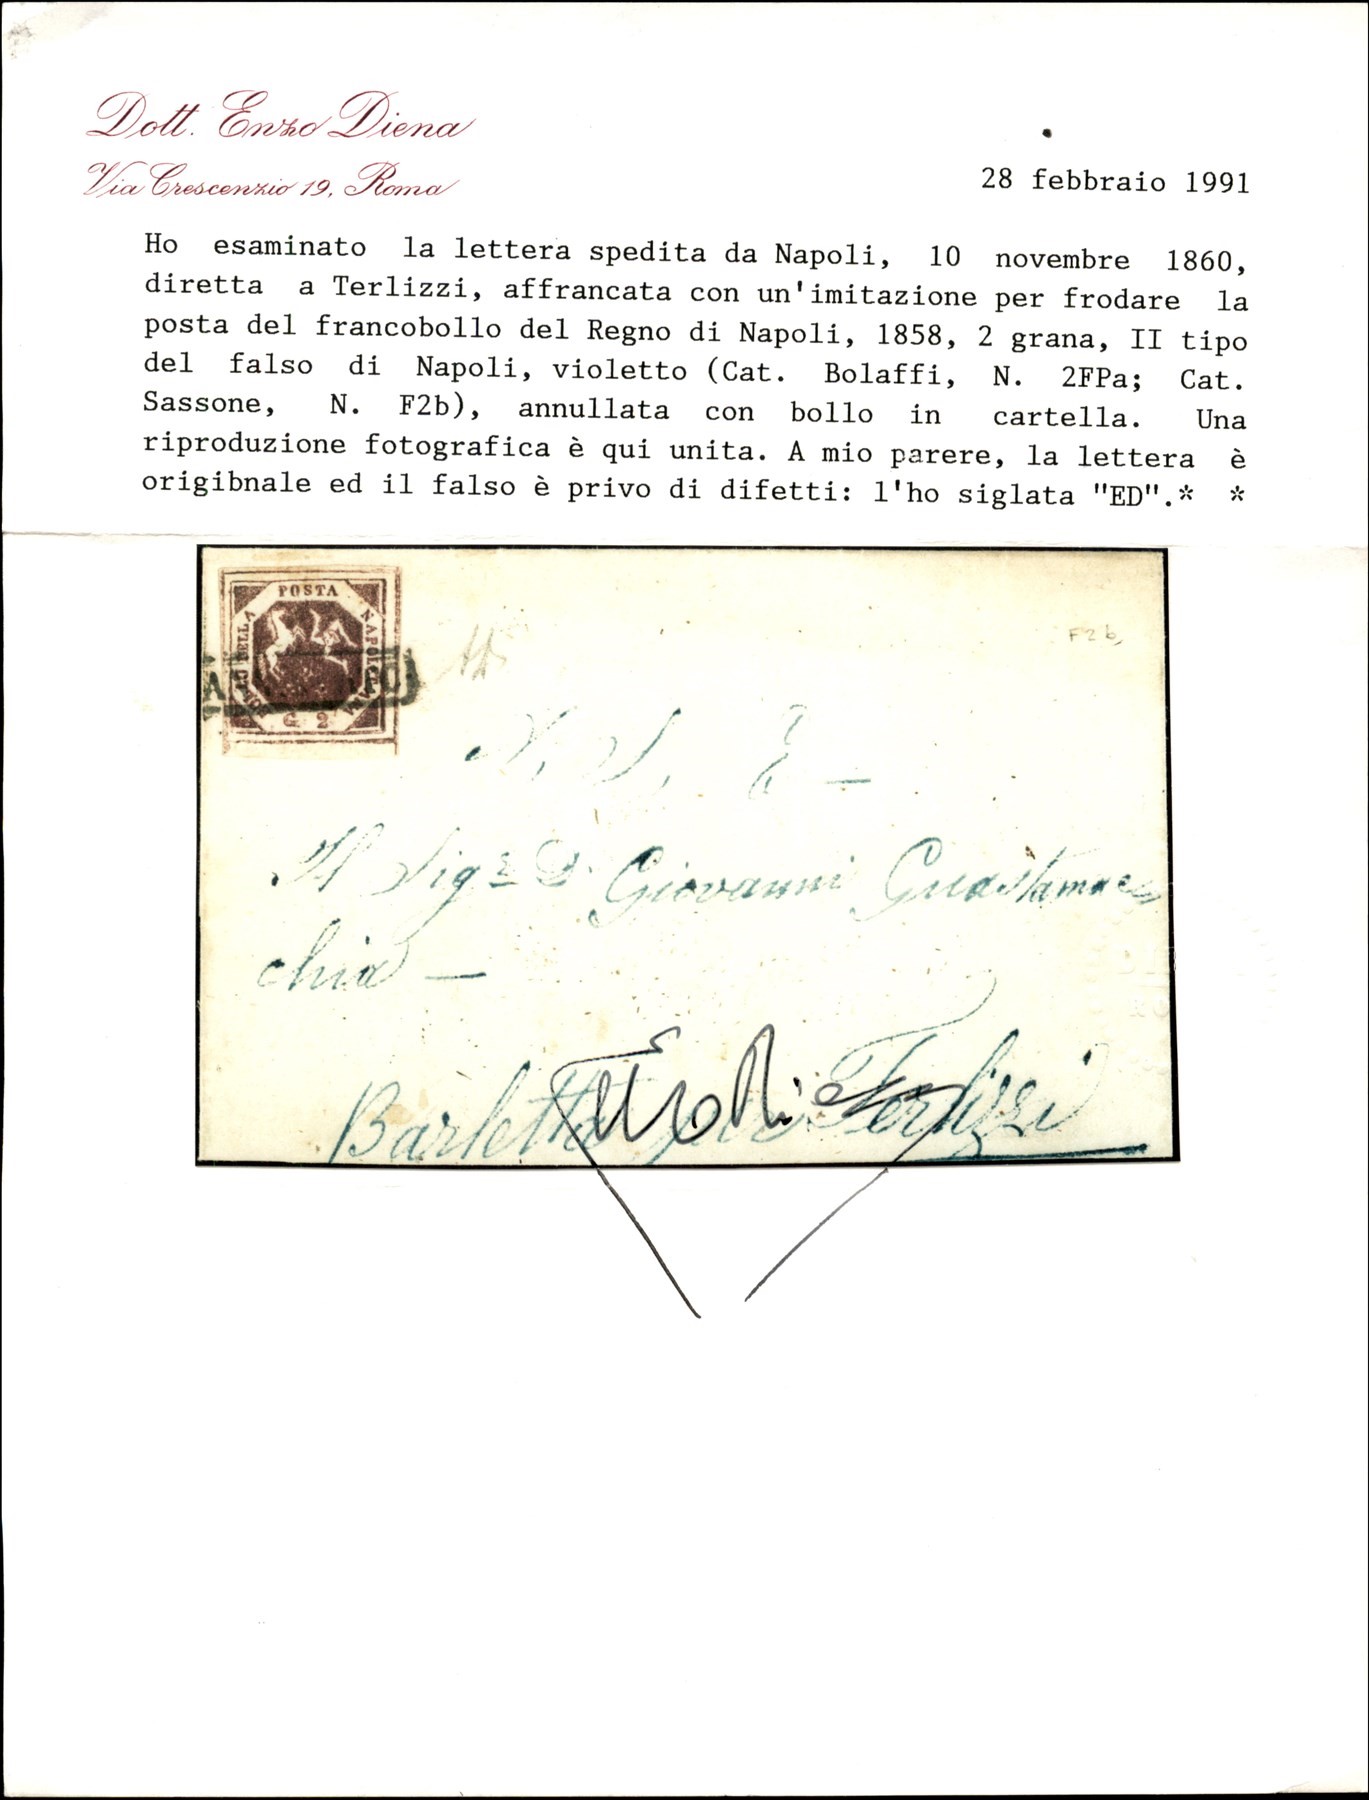 Dott. Enzo Diena
Via Crescenzio 19, Roma
28 febbraio 1991
Ho esaminato la lettera spedita da Napoli, 10 novembre 1860,
diretta a Terlizzi, affrancata con un'imitazione per frodare la
posta del francobollo del Regno di Napoli, 1858, 2 grana, II tipo
del falso di Napoli, violetto (Cat. Bolaffi, N. 2FPa; Cat.
Sassone, N. F2b), annullata con bollo in cartella. Una
riproduzione fotografica è qui unita. A mio parere, la lettera è
origibnale ed il falso è privo di difetti: l'ho siglata "ED".* *
POSTA
NAPOLETANA
BOLLO DELLA
G. 2
F2b
A S. E
Il Sigr D. Giovanni Guastamac
chia —
Barletta per Terlizzi